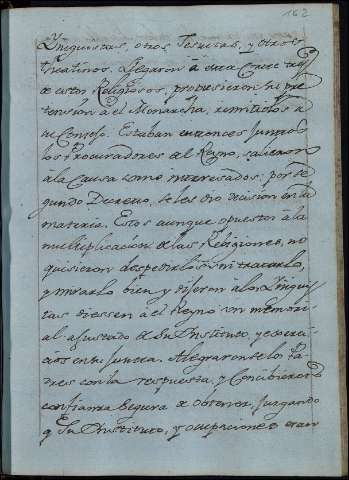 162
Iniguistas, otros Jesuitas, y otros
theatinos. Llegaron â esta Corte tres
de estos Religiosos, propusieron su pre
tension al Monarcha, remitiolos a
su Consejo. Estaban entonces juntos
los Procuradores del Reyno, salieron
â la Causa como interesados: por se
gundo Decreto, se les dio decision en la
materia. Estos aunque opuestos â la
multiplicacion de las Religiones, no
quisieron despedirlos sin tratarlo,
y mirarlo bien y dijeron a los Inigui
tas diessen â el Reyno un memori-
al ajustado de su Instituto, y exerci-
cios en su Junta. Alegraronse los Pa-
dres con la respuesta, y Concibieron
confianza segura de obtener, juzgando
q Su Instituto, y ocupaciones eran